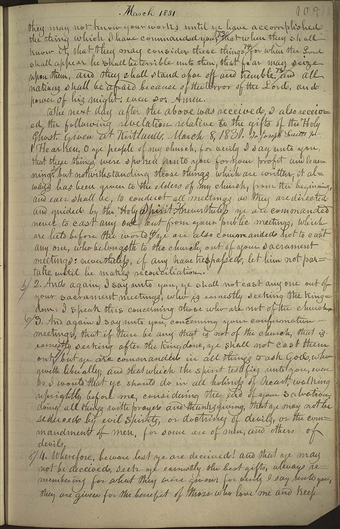 March 1831
109
they may not know your works until ye have accomplished
the thing which I have commanded you; that when they shall
know it, that they may consider these things, for when the Lord
shall appear he shall be terrible unto them, that fear may seize
upon them, and they shall stand afar off and tremble; and all
nations shall be afraid because of the terror of the Lord, and
power of his might: even so: Amen.
The next day after the above was received, I also receiv-
ed, the following revelation relative to the gifts of the Holy
Ghost: Given at Kirtland, March 8, 1831.
1 Hearken, O ye people of my church, for verily I say unto you,
that these things were spoken unto you for your profit and lear-
ning; but notwithstanding those things which are written, it al-
ways has been given to the elders of my church, from the beginning,
and ever shall be, to conduct all meetings as they are directed
and guided by the Holy Spirit: Nevertheless ye are commanded
never to cast any one out from your public meetings, which
are held before the world: ye are also commanded not to cast
any one, who belongeth to the church, out of your sacrament
meetings: nevertheless, if any have trespassed, let him not par-
take until he makes reconciliation.
2. And again, I say unto you, ye shall not cast any one out of
your sacrament meetings, who is earnestly seeking the king-
dom. I speak this concerning those who are not of the church.
3. And again I say unto you, concerning your confirmation
meetings, that if there be any that is not of the church, that is
earnestly seeking after the kingdom, ye shall not cast them
out; but ye are commanded in all things to ask God, who
giveth liberally, and that which the spirit testifies unto you, even
so I would that ye should do in all holiness of heart, walking
uprightly before me, considering the end of your salvation,
doing all things with prayer and thanksgiving, that ye may not be
seduced by evil spirits, or doctrines of devils, or the com-
mandments of men, for some are of men, and others of
devils.
4. Wherefore, beware lest ye are deceived! and that ye may
not be deceived, seek ye earnestly the best gifts, always re-
membering for what they are given; for verily I say unto you,
they are given for the benefit of those who love me and keep